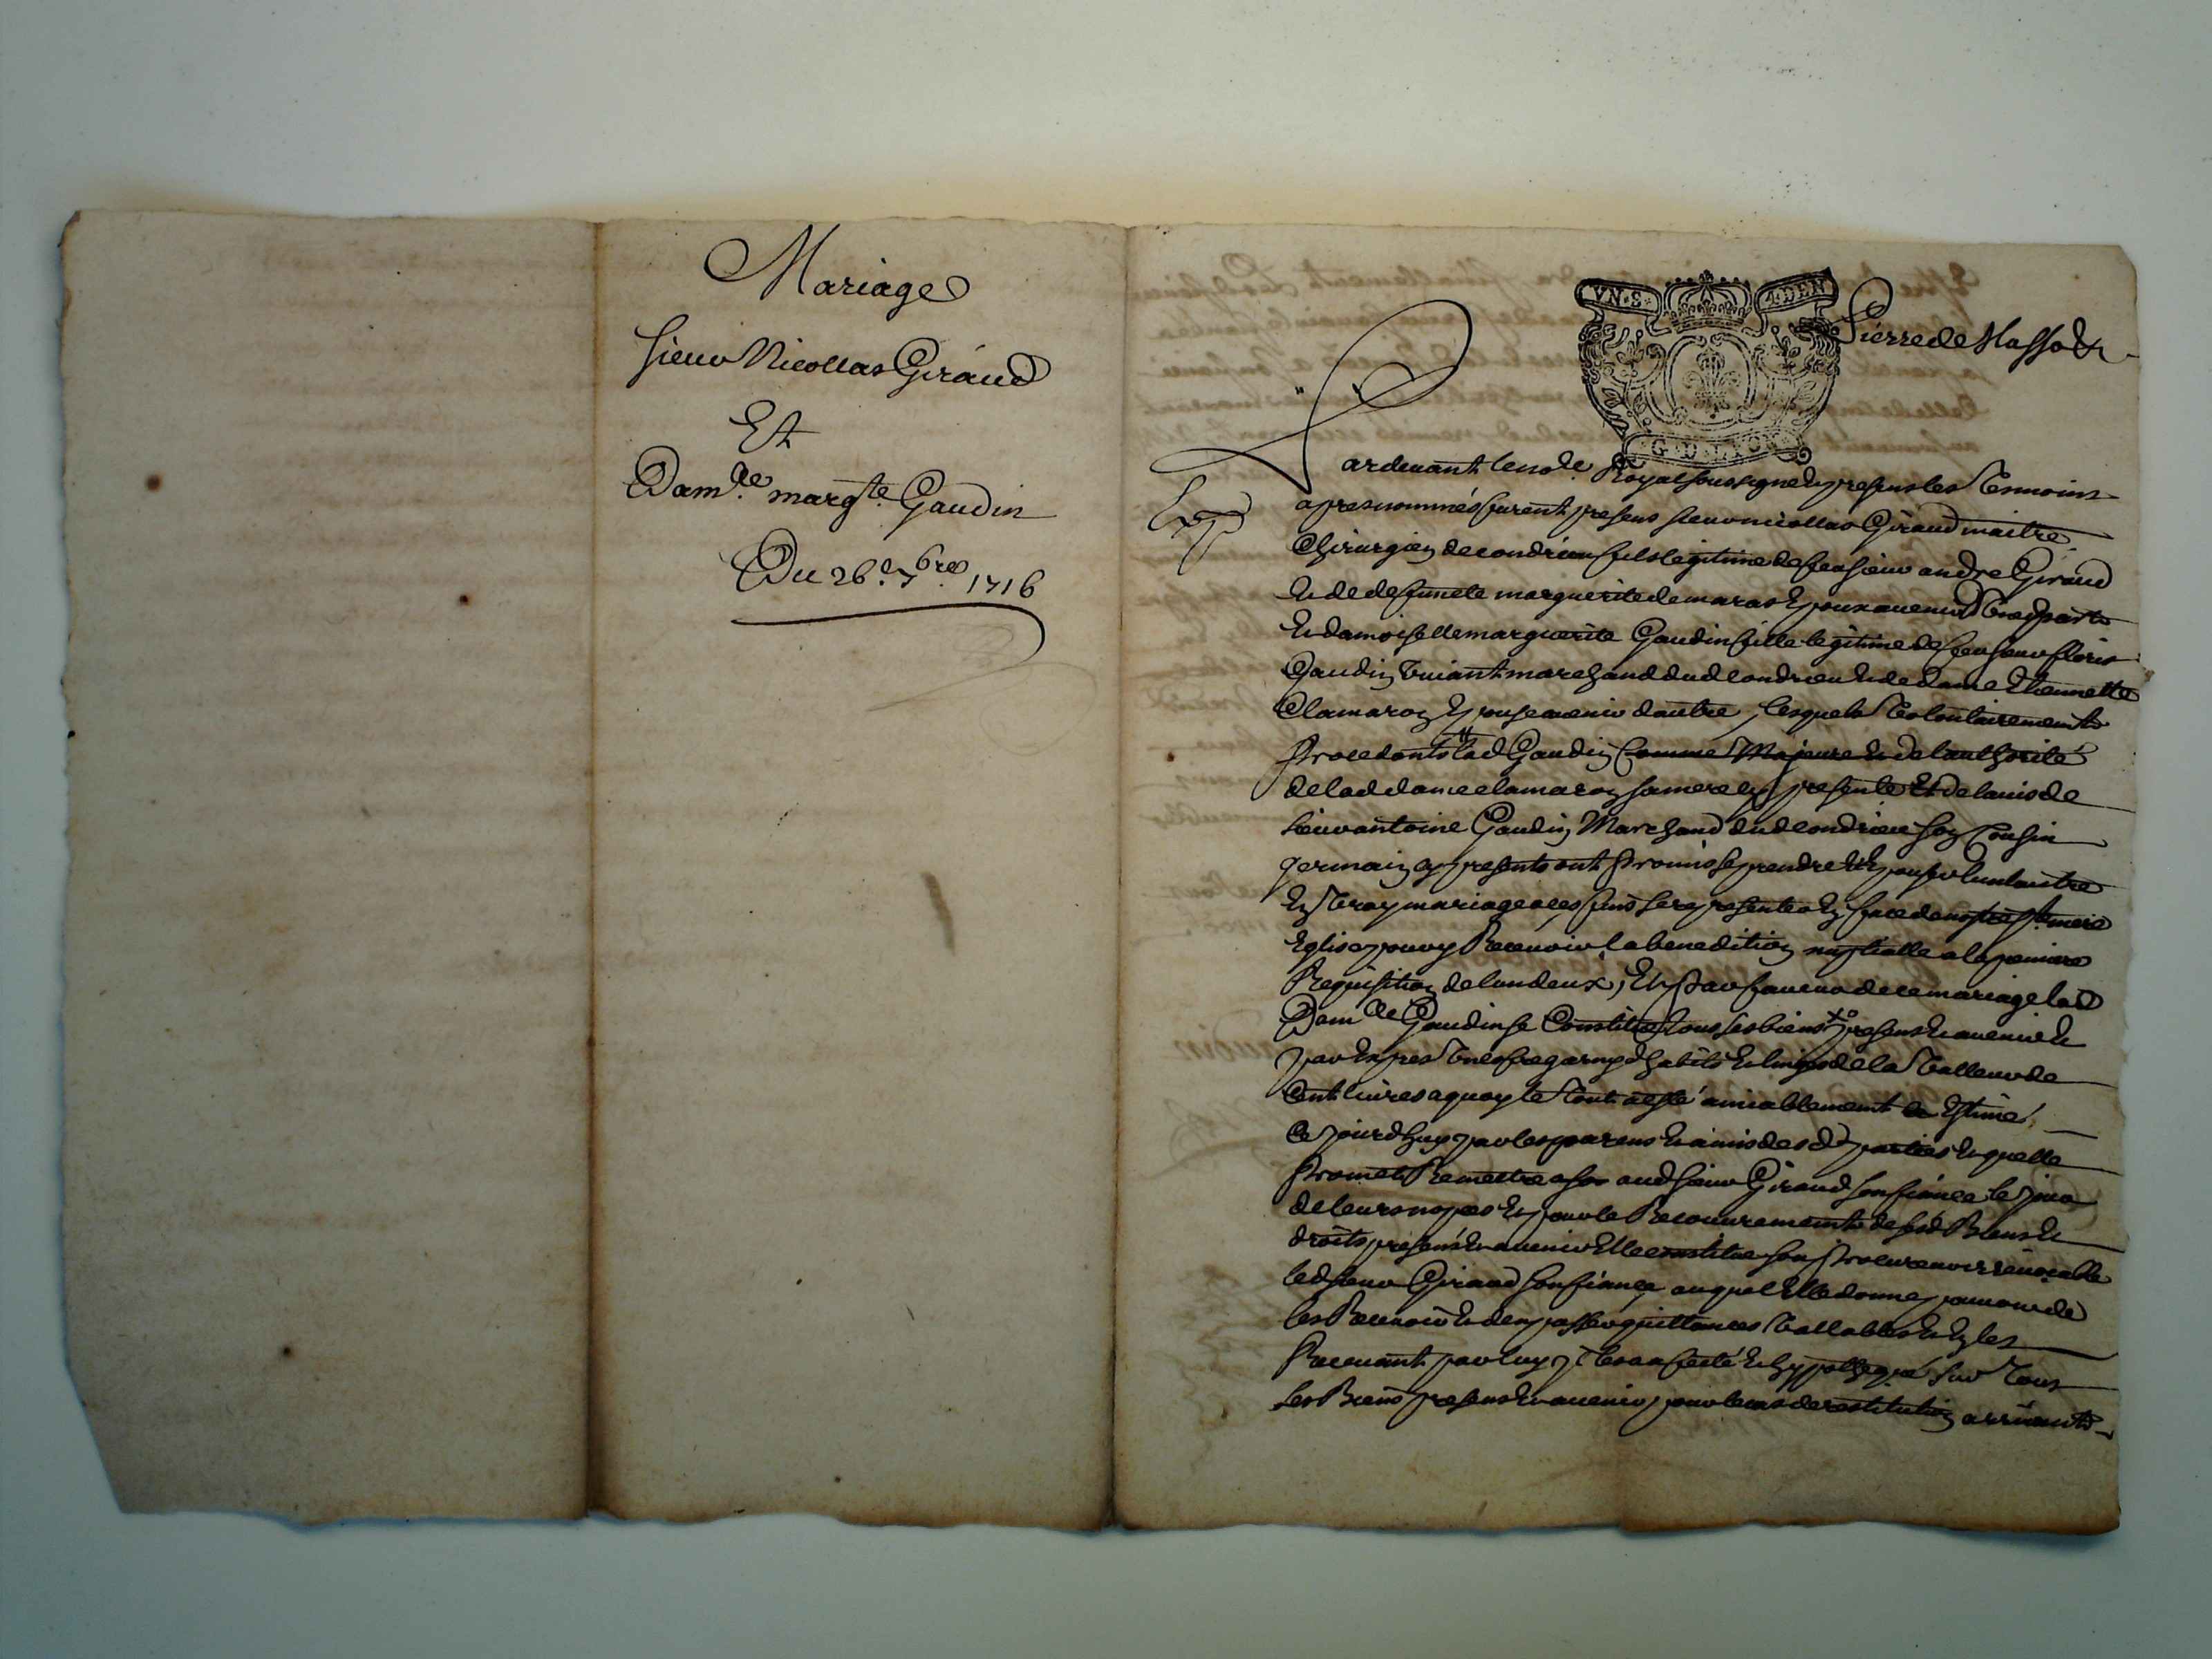 Mariage
Sieur Nicollas Giraud
Et
Dam.lle marg.te Gaudin
Du 26.e 7bre 1716
VN S 4 DEN
G D LYON
Pierre de
Exp
Pardevant le no.re Royal soussigné et presens les Tesmoins
apres nommés furent presens sieur nicollas Giraud maitre
Chirurgien de condrieu fils legitime de feu sieur andre Giraud
et de defuncte marguerite demaras Epoux avenir d'une part
Et damoiselle marguerite Gaudin fille legitime de feu sieur floris
Gaudin vivant marchand dud condrieu et de dame Etiennette
Clamaron Epouse avenir d'autre, lesquels volontairement
Procedants lad Gaudin Comme Majeure et de l'authorité
de lad dame clamaron sa mere cy presente Et de l'avis de
sieur antoine Gaudin Marchand dud condrieu son Cousin
germain cy present ont promis se prendre et epouser l'un l'autre
En vray mariage a ces fins se representer En face de nostre S.te mere
Eglise pour y Recevoir la benedition nuptialle a la premiere
Requisition de l'un d'eux, Et par faveur de ce mariage lad
Dam.lle Gaudin se Constitue tous ses biens presens et avenir et
par Expres d'habits et linges de la valleur de
Cent livres a quoy le tout a esté amiablement Estimé
Ce jourd'huy par les parens et amis desd parties et quelle
Promet Remettre aud sieur Giraud son fiancé le jour
de leurs nopces Et pour le Recouvrement de sesd Biens et
droits presens et avenir Elle constitue son Procureur irrévocable
led sieur Giraud son fiancé auquel Elle donne pouvoir de
les Recevoir et d'en passer quittances vallables et en les
Recevant par luy il les a afecté et hyppothequé sur Tous
ses Biens presens et avenir pour le cas de restitution arrivant